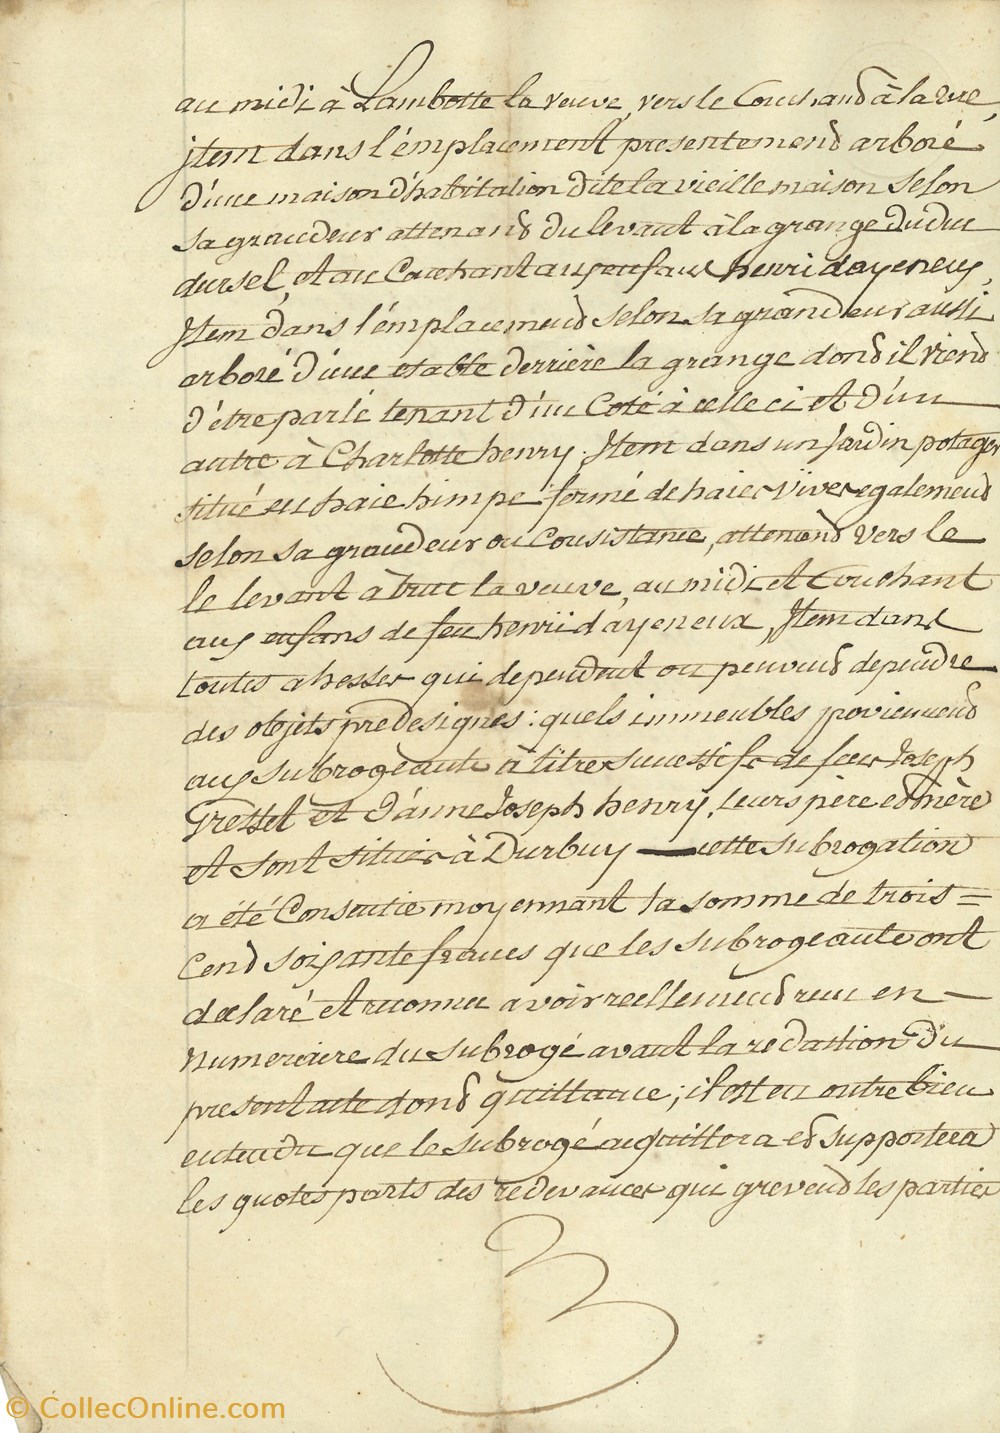 au midi à Lambotte la veuve, vers le Couchand à la rue,
jtem dans l'émplacement presentemend arboré
d'une maison d'habitation dite la vieille maison selon
sa grandeur attenand du levant à la grange du duc
dursel, et au Couchant aux enfans henri dayeneux,
Jtem dans l'émplacemend selon sa grandeur aussi
arboré d'une etable derrière la grange dond il viend
d'être parlé tenant d'un Coté à celle ci et d'un
autre à Charlotte henry; Jtem dans un Jardin potager
situé en haie himpe formé de haies vives egalemend
selon sa grandeur ou Consistance, attenand vers le
le levant à la veuve, au midi et Couchant
aux enfans de feu henri dayeneux, Jtem dans
toutes ahesses qui dependent ou peuvend dependre
des objets predesignés: quels immeubles proviennend
aux subrogeants à titre successifs de feus Joseph
Gresset et d'ánne Joseph henry, leurs père ed mère
et sont situés à Durbuy — cette subrogation
a été Consentie moyennant la somme de trois =
Cend soixante francs que les subrogeants ont
déclaré et reconnu avoir reellemend reçu en —
Numeraire du subrogé avant la redaction du
present acte dond quittance; il est en outre bien
entendu que le subrogé acquittera ed supportera
les quotes parts des redevances qui grevend les parties
© CollecOnline.com